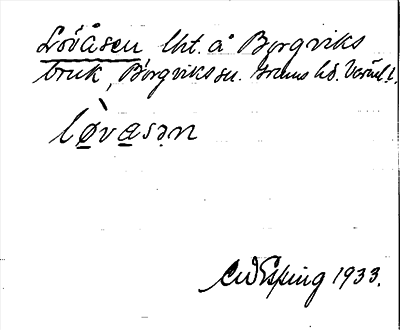 Lövåsen lht. å Borgviks
bruk, Borgviks sn. Grums hd. Värml.
lø̀vasən
CWEsping 1933.